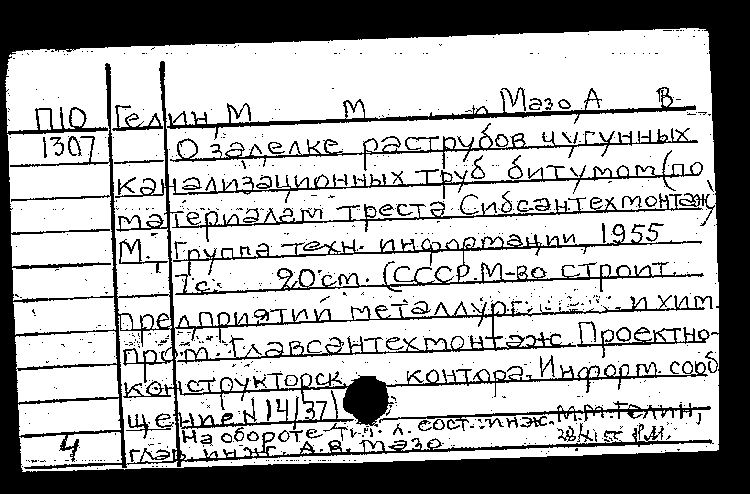 П10 Гелин, М М и Мазо, А В.
1307 О заделке раструбов чугунных
канализационных труб битумом (по
материалам треста Сибсантехмонтаж)
М., Группа техн. информации, 1955
7с. 20 см. (СССР. М-во строит.
предприятий металлург. и хим.
пром. Главсантехмонтаж. Проектно-
конструкторск. контора. Информ. сооб
щение N 14/37)
На обороте тит. л. сост.: инж. М.М. Гелин,
4 глав. инж. А.В. Мазо